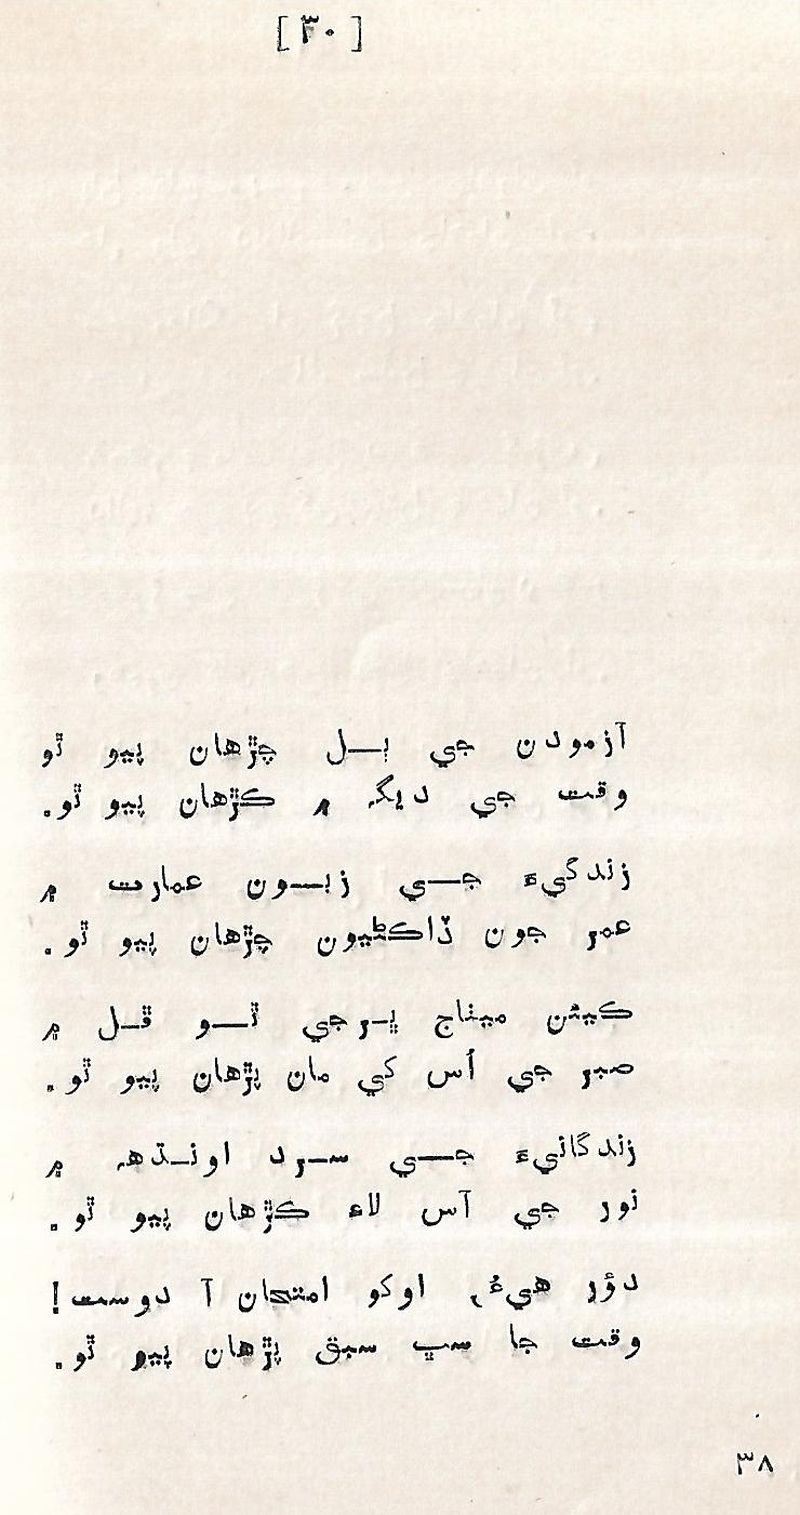 [ ۳۰ ]
آزمودن جي ٻـــل چڙهان پيو ٿو
وقت جي ديڳہ ۾ ڪڙهان پيو ٿو.
زندگيءَ جـــي زبـــون عمارت ۾
عمر جون ڏاڪڻيون چڙهان پيو ٿو.
ڪيئن ميناج ڀـرجي ٿـــو ڦـل ۾
صبر جي اُس کي مان پڙهان پيو ٿو.
زندگانيءَ جـــي ســرد اونـڌهہ ۾
نور جي آس لاءِ ڪڙهان پيو ٿو.
دؤر هيءُ، اوکو امتحان آ دوست!
وقت جا سڀ سبق پڙهان پيو ٿو.
۳۸